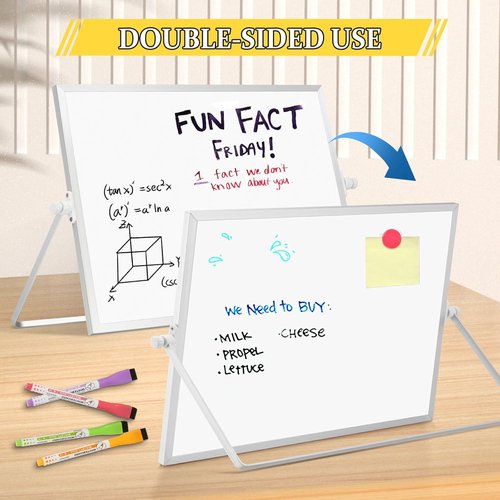 DOUBLE-SIDED USE
FUN FACT
FRIDAY!
1 fact we don't
know about you.
(tan x)' = sec²x
(aˣ)' = aˣ ln a
Z
Y
X
(csc
We Need to BUY:
• MILK
• CHEESE
• PROPEL
• Lettuce